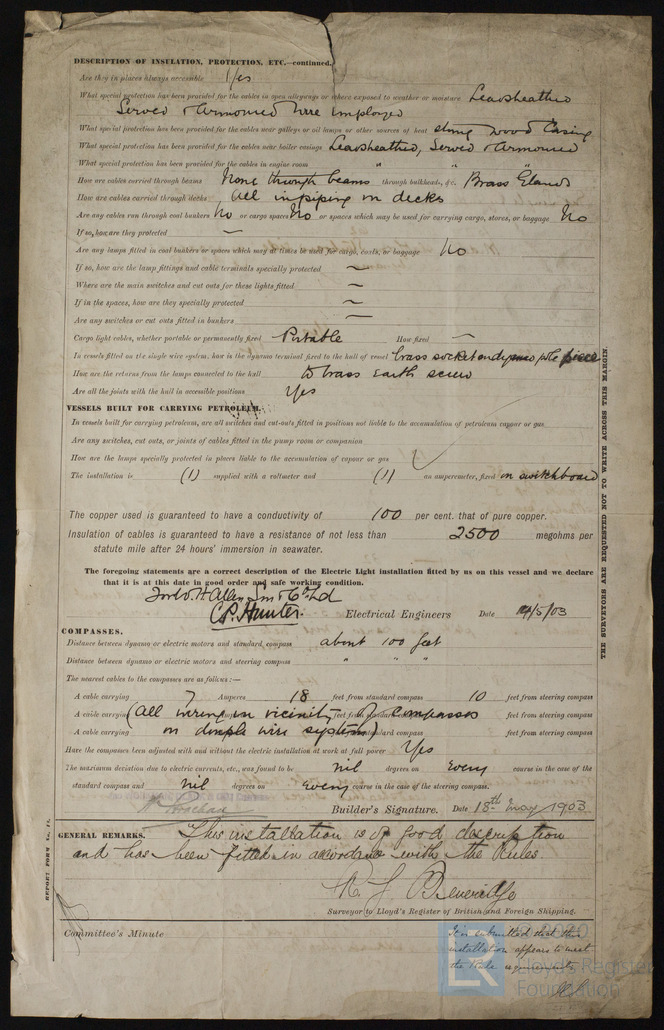 DESCRIPTION OF INSULATION, PROTECTION, ETC.—continued.
Are they in places always accessible Yes
What special protection has been provided for the cables in open alleyways or where exposed to weather or moisture Leadsheathed
Served & Armoured Wire employed
What special protection has been provided for the cables near galleys or oil lamps or other sources of heat strong wood Casing
What special protection has been provided for the cables near boiler casings Leadsheathed, Served & Armoured
What special protection has been provided for the cables in engine room " "
How are cables carried through beams None through beams through bulkheads, &c. Brass Glands
How are cables carried through decks All in piping on decks
Are any cables run through coal bunkers No or cargo spaces No or spaces which may be used for carrying cargo, stores, or baggage No
If so, how are they protected —
Are any lamps fitted in coal bunkers or spaces which may at times be used for cargo, coals, or baggage No
If so, how are the lamp fittings and cable terminals specially protected —
Where are the main switches and cut outs for these lights fitted —
If in the spaces, how are they specially protected —
Are any switches or cut outs fitted in bunkers —
Cargo light cables, whether portable or permanently fixed Portable How fixed —
In vessels fitted on the single wire system, how is the dynamo terminal fixed to the hull of vessel brass socket on dynamo pole piece
How are the returns from the lamps connected to the hull to brass earth screw
Are all the joints with the hull in accessible positions Yes
VESSELS BUILT FOR CARRYING PETROLEUM.
In vessels built for carrying petroleum, are all switches and cut-outs fitted in positions not liable to the accumulation of petroleum vapour or gas
Are any switches, cut outs, or joints of cables fitted in the pump room or companion
How are the lamps specially protected in places liable to the accumulation of vapour or gas
The installation is (1) supplied with a voltmeter and (1) an amperemeter, fixed on switchboard
The copper used is guaranteed to have a conductivity of 100 per cent. that of pure copper.
Insulation of cables is guaranteed to have a resistance of not less than 2500 megohms per
statute mile after 24 hours' immersion in seawater.
The foregoing statements are a correct description of the Electric Light installation fitted by us on this vessel and we declare
that it is at this date in good order and safe working condition.
For W. H. Allen, Son & Co Ltd
C.P. Hunter. Electrical Engineers Date 14/5/03
COMPASSES.
Distance between dynamo or electric motors and standard compass about 100 feet
Distance between dynamo or electric motors and steering compass " " "
The nearest cables to the compasses are as follows:—
A cable carrying 7 Amperes 18 feet from standard compass 10 feet from steering compass
A cable carrying (All wiring in vicinity of compasses feet from steering compass
A cable carrying on double wire system) feet from steering compass
Have the compasses been adjusted with and without the electric installation at work at full power Yes
The maximum deviation due to electric currents, etc., was found to be nil degrees on Every course in the case of the
standard compass and nil degrees on every course in the case of the steering compass.
Builder's Signature. Date 18th May 1903
GENERAL REMARKS. This installation is of good description
and has been fitted in accordance with the Rules.
R. J. Beveridge
Surveyor to Lloyd's Register of British and Foreign Shipping.
Committee's Minute
It is submitted that this
installation appears to meet
the Rule requirements
THE SURVEYORS ARE REQUESTED NOT TO WRITE ACROSS THIS MARGIN.
REPORT FORM No. 17.
LR
Lloyd's Register
Foundation